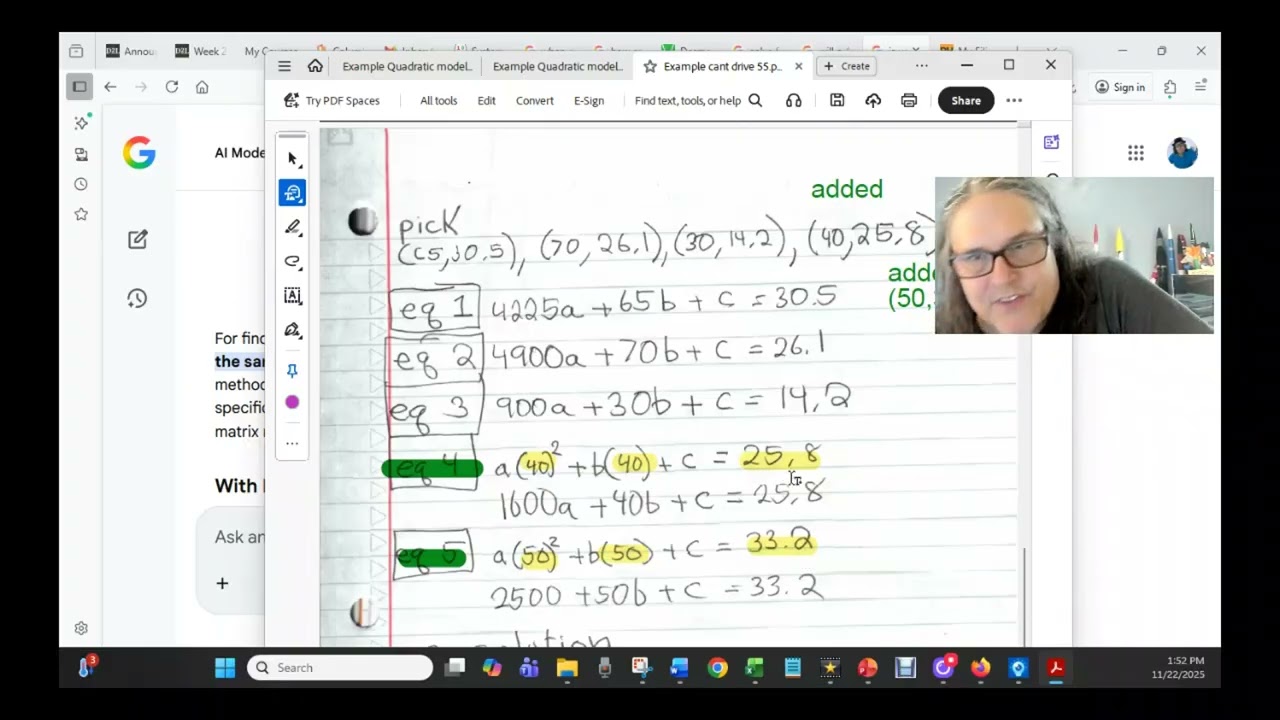 Annou
Week 2
My Co
Example Quadratic model...
Example Quadratic model...
Example cant drive 55.p...
Create
Sign in
Try PDF Spaces
All tools
Edit
Convert
E-Sign
Find text, tools, or help
Share
AI Mode
added
pick
(65,30.5), (70, 26.1), (30, 14.2), (40,25.8)
adde
(50,
eq 1 4225a + 65b + c = 30.5
eq 2 4900a + 70b + c = 26.1
eq 3 900a + 30b + c = 14.2
eq 4 a(40)² + b(40) + c = 25.8
1600a + 40b + c = 25.8
eq 5 a(50)² + b(50) + c = 33.2
2500 + 50b + c = 33.2
For find
the sa
method
specific
matrix
With
Ask an
Search
3
1:52 PM
11/22/2025